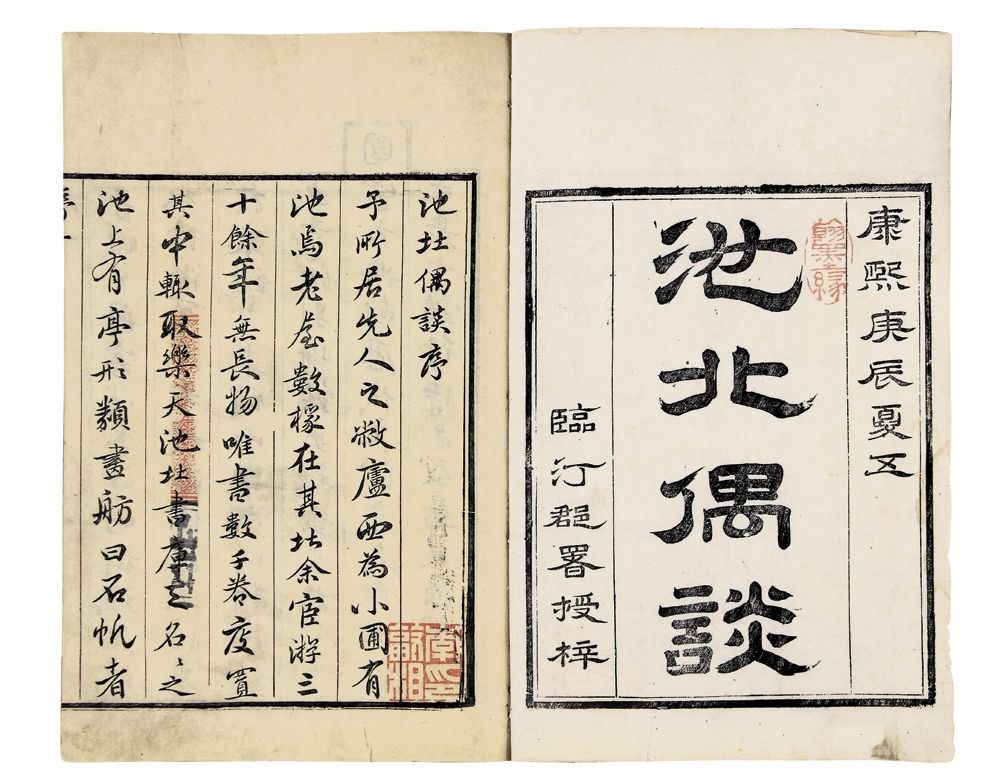 康熙庚辰夏五
翰墨緣
池北偶談
臨汀郡署授梓
池北偶談序
予所居先人之敝廬西為小圃有
池焉老屋數椽在其北余宦游三
十餘年無長物唯書數千卷庋置
其中輒取樂天池北書庫之名〻之
池上有亭形類畫舫曰石帆者